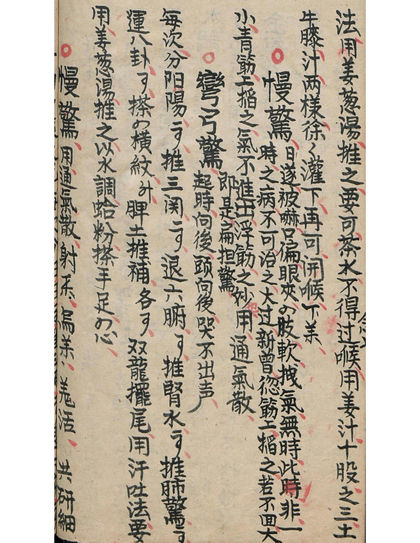 法用姜葱湯推之要可茶水不得过喉用姜汁十股之三土
牛膝汁两樣徐〻灌下再可開喉下羙
慢驚 日遂被嚇只扁眼夾の肢軟拽氣無時此時非一
時之病不可治之大过新曾筋工掐之若不面大
小青筋工掐之氣不進出浮筋之妙用通氣散
彎弓驚 即是扁担驚
起時向後頭向後哭不出声
每次分阴陽推三関退六腑推腎水推肺驚
運八卦搽の横紋脾土推補各双龍擺尾用汗吐法要
用姜葱湯推之以水調蛤粉搽手足の心
慢驚 用通氣散射烏羌活共研細